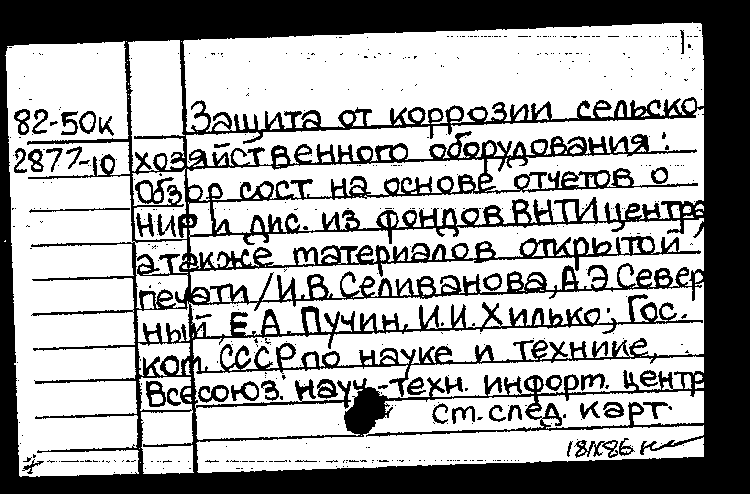 1.
82-50к Защита от коррозии сельско-
2877-10 хозяйственного оборудования:
Обзор сост на основе отчетов о
НИР и дис. из фондов ВНТИцентра,
а также материалов открытой
печати/И.В. Селиванова, А.Э Север
ный, Е.А. Пучин, И.И. Хилько; Гос.
ком. СССР по науке и технике,
Всесоюз. науч.-техн. информ. центр
См. след. карт.